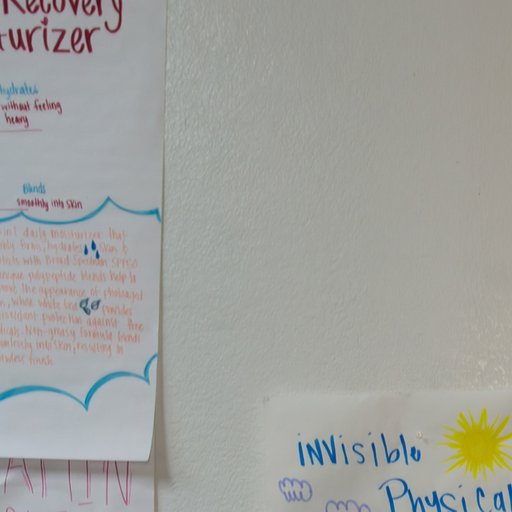 Recovery
turizer
hydrates
without feeling
heavy
Blends
smoothly into skin
in 1 daily moisturizer that
firm, hydrates skin &
with Broad Spectrum SPF50
unique polypeptide blends help to
the appearance of photoaged
, while white tea provides
antioxidant protection against free
Non-greasy formula blends
into skin, resulting in
finish
INVisible
Physical